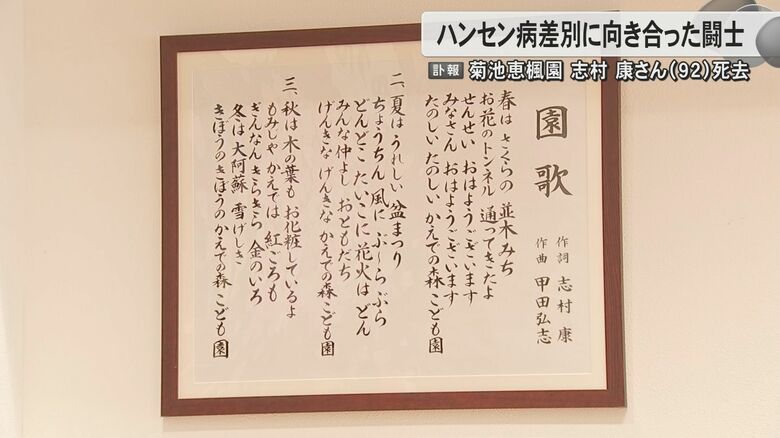 ハンセン病差別に向き合った闘士
訃報 菊池恵楓園 志村 康さん(92)死去
園歌
作詞 志村 康
作曲 甲田弘志
春は さくらの 並木みち
お花のトンネル 通ってきたよ
せんせい おはようございます
みなさん おはようございます
たのしい たのしい かえでの森 こども園
二、夏は うれしい 盆まつり
ちょうちん 風に ぶ〜らぶら
どんどこ たいこに 花火は どん
みんな仲よし おともだち
げんきな げんきな かえでの森 こども園
三、秋は 木の葉も お化粧しているよ
もみじや かえでは 紅ごろも
ぎんなん きらきら 金のいろ
冬は 大阿蘇 雪げしき
きぼうの きぼうの かえでの森 こども園